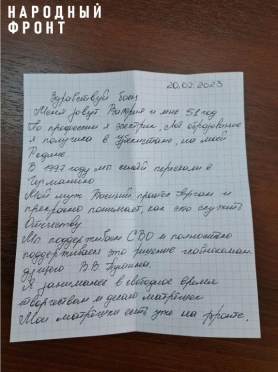 НАРОДНЫЙ
ФРОНТ
20.02.2023
Здравствуй боец
Меня зовут Валерия и мне 58 год
По профессии я электрик. Моё образование
я получила в Узбекистане, на моей
Родине
В 1997 году мы семьёй переехали в
Германию
Мой муж прошёл Афган и
прекрасно понимает, как это служить
Отечеству
Мы поддерживаем СВО и полностью
поддерживаем это решение главнокоман-
дущего В.В. Путина.
Я занимаюсь в свободное время
творчеством и делаю матрёшек
Мои матрёшки есть уже на фронте.